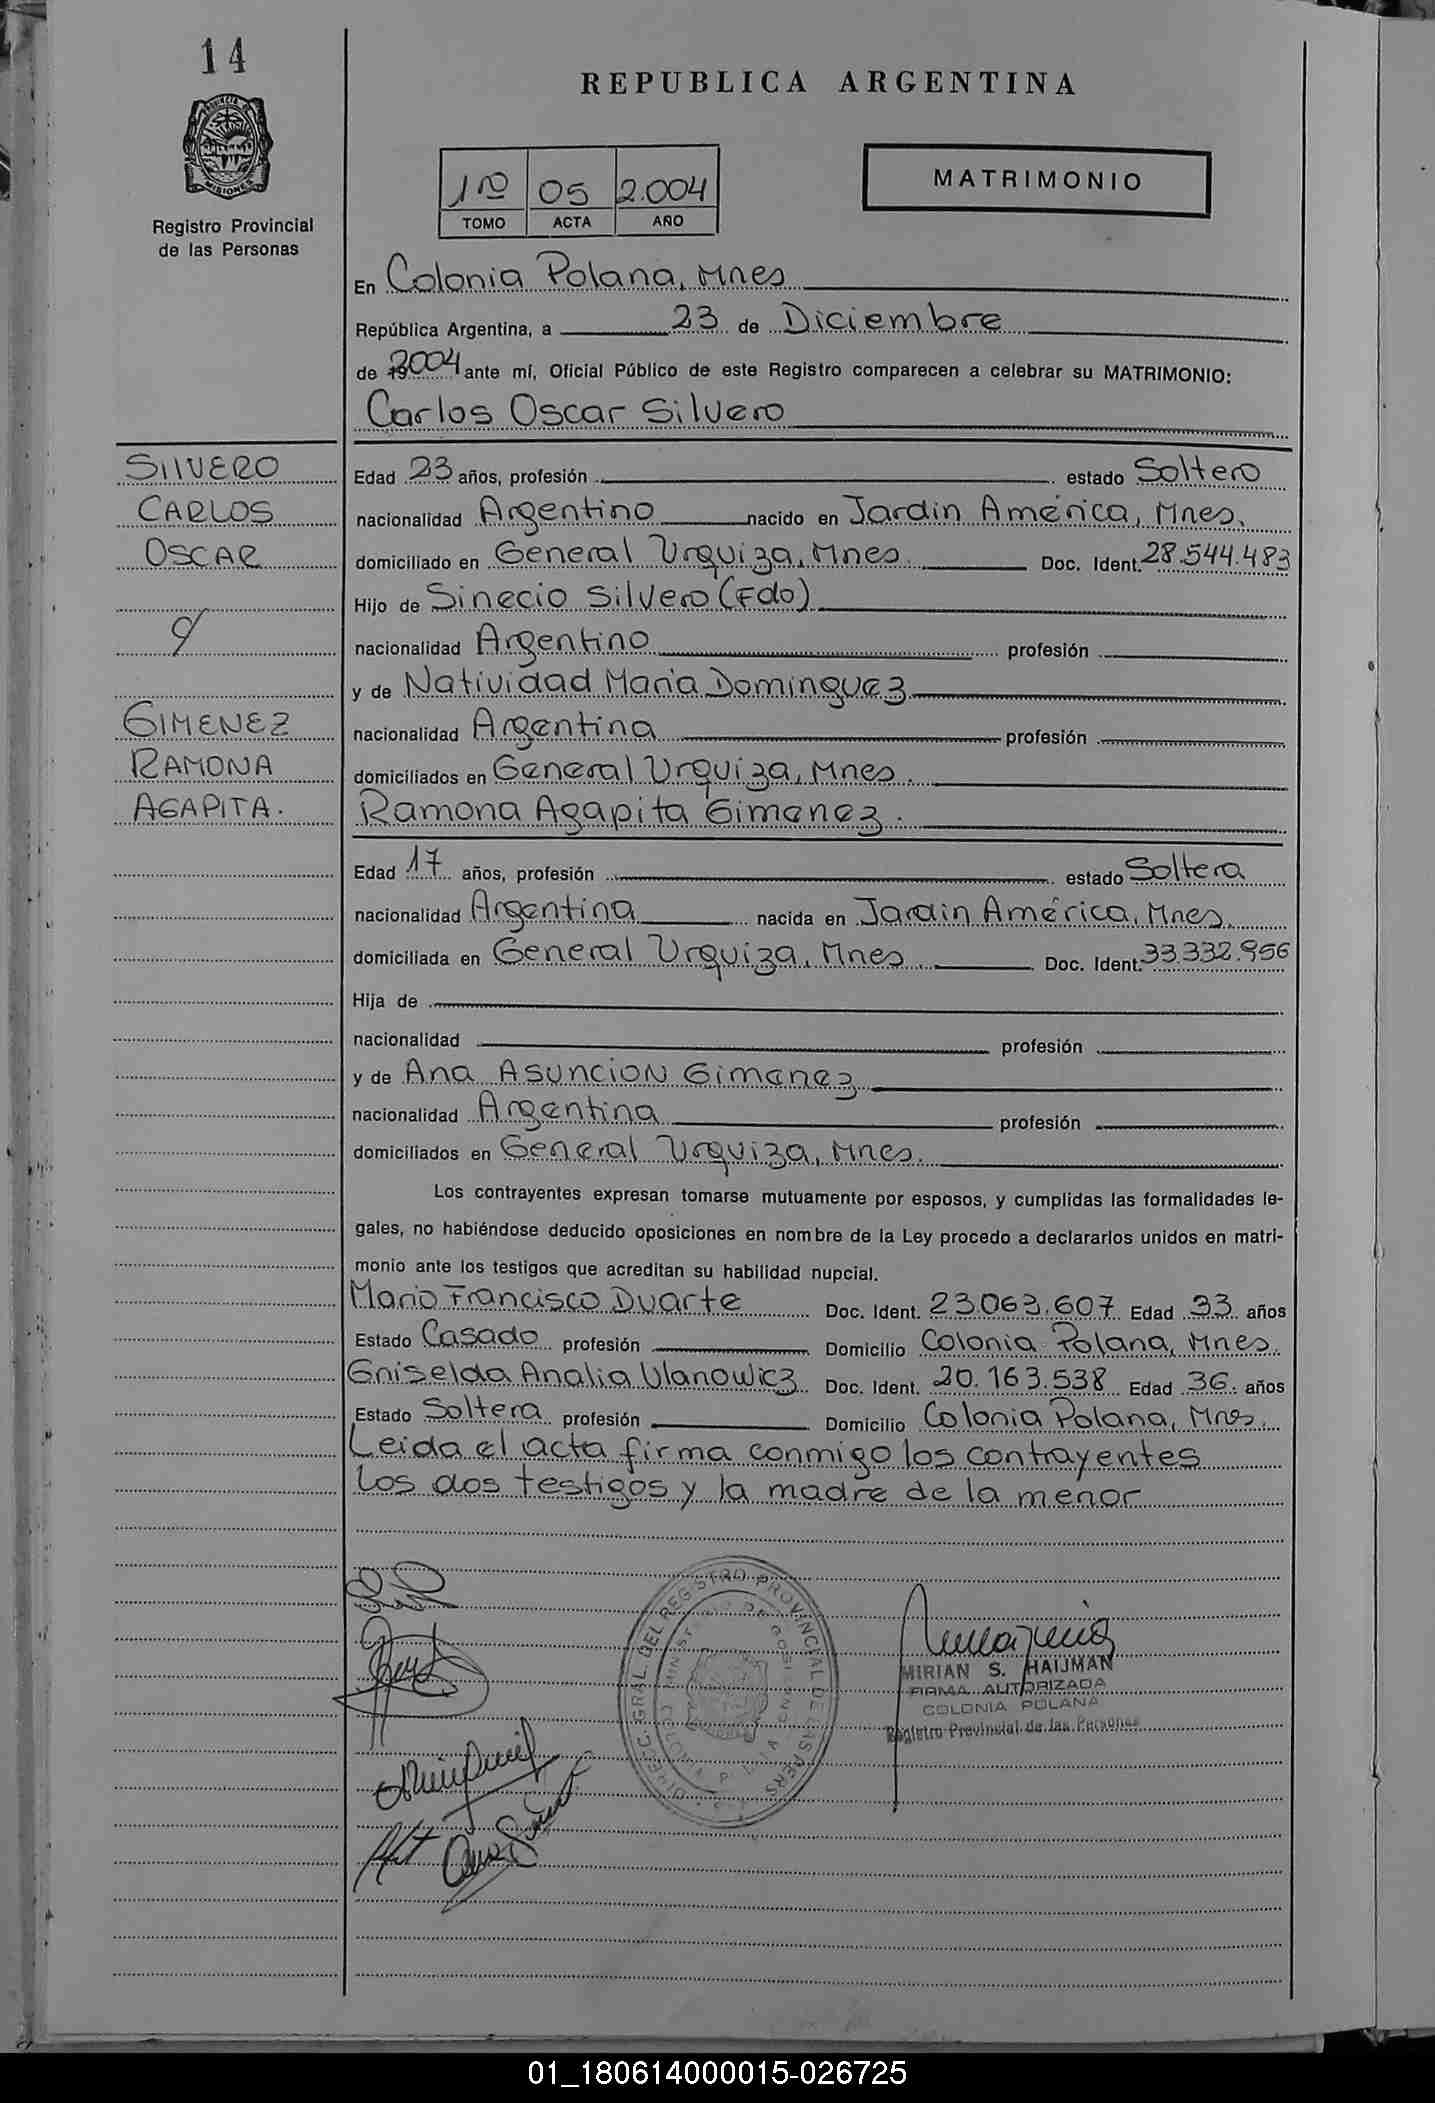 14
REPUBLICA ARGENTINA
MISIONES
Registro Provincial
de las Personas
1º 05 2.004
TOMO ACTA AÑO
MATRIMONIO
En Colonia Polana, Mnes
República Argentina, a 23 de Diciembre
de 2004 ante mí, Oficial Público de este Registro comparecen a celebrar su MATRIMONIO:
Carlos Oscar Silvero
SILVERO
CARLOS
OSCAR
y
GIMENEZ
RAMONA
AGAPITA.
Edad 23 años, profesión estado Soltero
nacionalidad Argentino nacido en Jardin América, Mnes.
domiciliado en General Urquiza, Mnes. Doc. Ident. 28.544.483
Hijo de Sinecio Silvero (Fdo)
nacionalidad Argentino profesión
y de Natividad Maria Dominguez
nacionalidad Argentina profesión
domiciliados en General Urquiza, Mnes.
Ramona Agapita Gimenez.
Edad 17 años, profesión estado Soltera
nacionalidad Argentina nacida en Jardin América, Mnes.
domiciliada en General Urquiza, Mnes. Doc. Ident. 33.332.956
Hija de
nacionalidad profesión
y de Ana Asuncion Gimenez
nacionalidad Argentina profesión
domiciliados en General Urquiza, Mnes.
Los contrayentes expresan tomarse mutuamente por esposos, y cumplidas las formalidades le-
gales, no habiéndose deducido oposiciones en nombre de la Ley procedo a declararlos unidos en matri-
monio ante los testigos que acreditan su habilidad nupcial.
Mario Francisco Duarte Doc. Ident. 23.063.607 Edad 33 años
Estado Casado profesión Domicilio Colonia Polana, Mnes.
Griselda Analia Ulanowicz Doc. Ident. 20.163.538 Edad 36. años
Estado Soltera profesión Domicilio Colonia Polana, Mnes.
Leida el acta firma conmigo los contrayentes
los dos testigos y la madre de la menor
DIRECC. GRAL. DEL REGISTRO PROVINCIAL DE LAS PERS.
MIRIAN S. HAIJMAN
FIRMA AUTORIZADA
COLONIA POLANA
Registro Provincial de las Personas
01_180614000015-026725